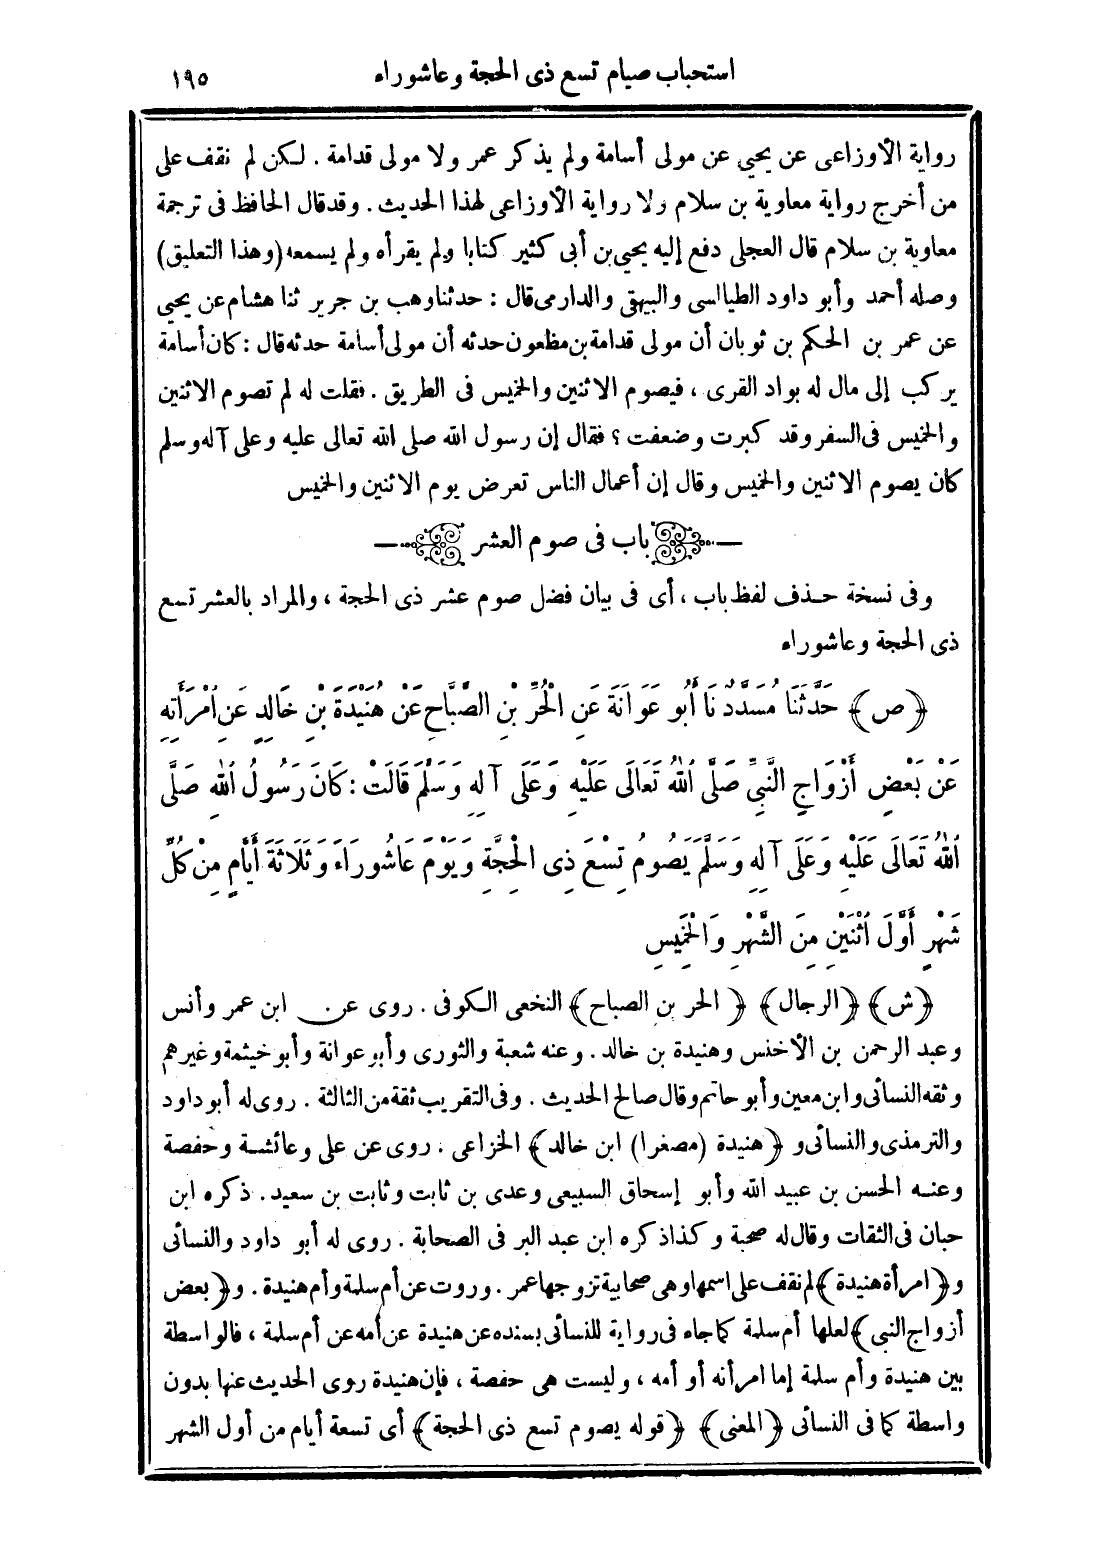 استحباب صيام تسع ذى الحجة وعاشوراء ١٩٥
رواية الأوزاعى عن يحيى عن مولى أسامة ولم يذكر عمر ولا مولى قدامة . لكن لم نقف على
من أخرج رواية معاوية بن سلام ولا رواية الأوزاعى لهذا الحديث . وقد قال الحافظ فى ترجمة
معاوية بن سلام قال العجلى دفع إليه يحيى بن أبى كثير كتابا ولم يقرأه ولم يسمعه (وهذا التعليق)
وصله أحمد وأبو داود الطيالسى والبيهقى والدارمى قال : حدثنا وهب بن جرير ثنا هشام عن يحيى
عن عمر بن الحكم بن ثوبان أن مولى قدامة بن مظعون حدثه أن مولى أسامة حدثه قال : كان أسامة
يركب إلى مال له بواد القرى ، فيصوم الاثنين والخميس فى الطريق . فقلت له لم تصوم الاثنين
والخميس فى السفر وقد كبرت وضعفت ؟ فقال إن رسول الله صلى الله تعالى عليه وعلى آله وسلم
كان يصوم الاثنين والخميس وقال إن أعمال الناس تعرض يوم الاثنين والخميس
باب فى صوم العشر
وفى نسخة حذف لفظ باب ، أى فى بيان فضل صوم عشر ذى الحجة ، والمراد بالعشر تسع
ذى الحجة وعاشوراء
﴿ص﴾ حَدَّثَنَا مُسَدَّدٌ نَا أَبُو عَوَانَةَ عَنِ الْحُرِّ بْنِ الصَّبَّاحِ عَنْ هُنَيْدَةَ بْنِ خَالِدٍ عَنِ امْرَأَتِهِ
عَنْ بَعْضِ أَزْوَاجِ النَّبِيِّ صَلَّى اللهُ تَعَالَى عَلَيْهِ وَعَلَى آلِهِ وَسَلَّمَ قَالَتْ : كَانَ رَسُولُ اللهِ صَلَّى
اللهُ تَعَالَى عَلَيْهِ وَعَلَى آلِهِ وَسَلَّمَ يَصُومُ تِسْعَ ذِى الْحِجَّةِ وَيَوْمَ عَاشُورَاءَ وَثَلَاثَةَ أَيَّامٍ مِنْ كُلِّ
شَهْرٍ أَوَّلَ اثْنَيْنِ مِنَ الشَّهْرِ وَالْخَمِيسِ
﴿ش﴾ ﴿الرجال﴾ ﴿الحر بن الصباح﴾ النخعى الكوفى . روى عن ابن عمر وأنس
وعبد الرحمن بن الأخنس وهنيدة بن خالد . وعنه شعبة والثورى وأبو عوانة وأبو خيثمة وغيرهم
وثقه النسائى وابن معين وأبو حاتم وقال صالح الحديث . وفى التقريب ثقة من الثالثة . روى له أبو داود
والترمذى والنسائى و ﴿هنيدة (مصغرا) ابن خالد﴾ الخزاعى . روى عن على وعائشة وحفصة
وعنه الحسن بن عبيد الله وأبو إسحاق السبيعى وعدى بن ثابت وثابت بن سعيد . ذكره ابن
حبان فى الثقات وقال له صحبة وكذا ذكره ابن عبد البر فى الصحابة . روى له أبو داود والنسائى
و﴿امرأة هنيدة﴾ لم نقف على اسمها وهى صحابية تزوجها عمر . وروت عن أم سلمة وأم هنيدة . و﴿بعض
أزواج النبى﴾ لعلها أم سلمة كما جاء فى رواية للنسائى بسنده عن هنيدة عن أمه عن أم سلمة ، فالواسطة
بين هنيدة وأم سلمة إما امرأته أو أمه ، وليست هى حفصة ، فإن هنيدة روى الحديث عنها بدون
واسطة كما فى النسائى ﴿المعنى﴾ ﴿قوله يصوم تسع ذى الحجة﴾ أى تسعة أيام من أول الشهر